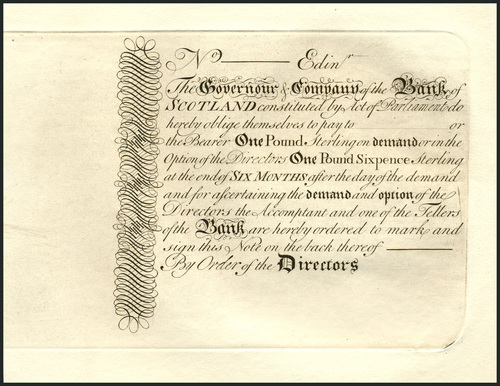 No ——— Edinr
The Governour & Company of the Bank of
SCOTLAND constituted by Act of Parliament do
hereby oblige themselves to pay to ——— or
the Bearer One Pound Sterling on demand or in the
Option of the Directors One Pound Sixpence Sterling
at the end of SIX MONTHS after the day of the demand
and for ascertaining the demand and option of the
Directors the Accomptant and one of the Tellers
of the Bank are hereby ordered to mark and
sign this Note on the back thereof ———
By Order of the Directors